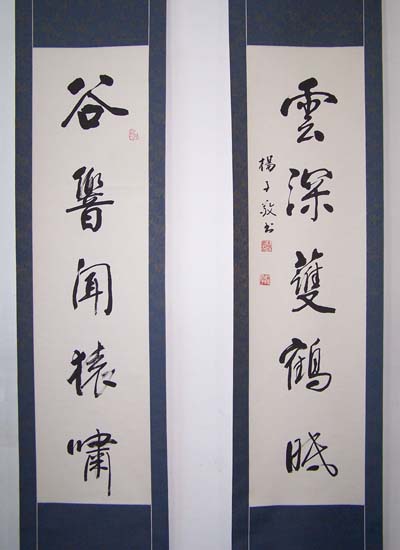 雲深護鶴眠
楊子敬書
谷響聞猿嘯